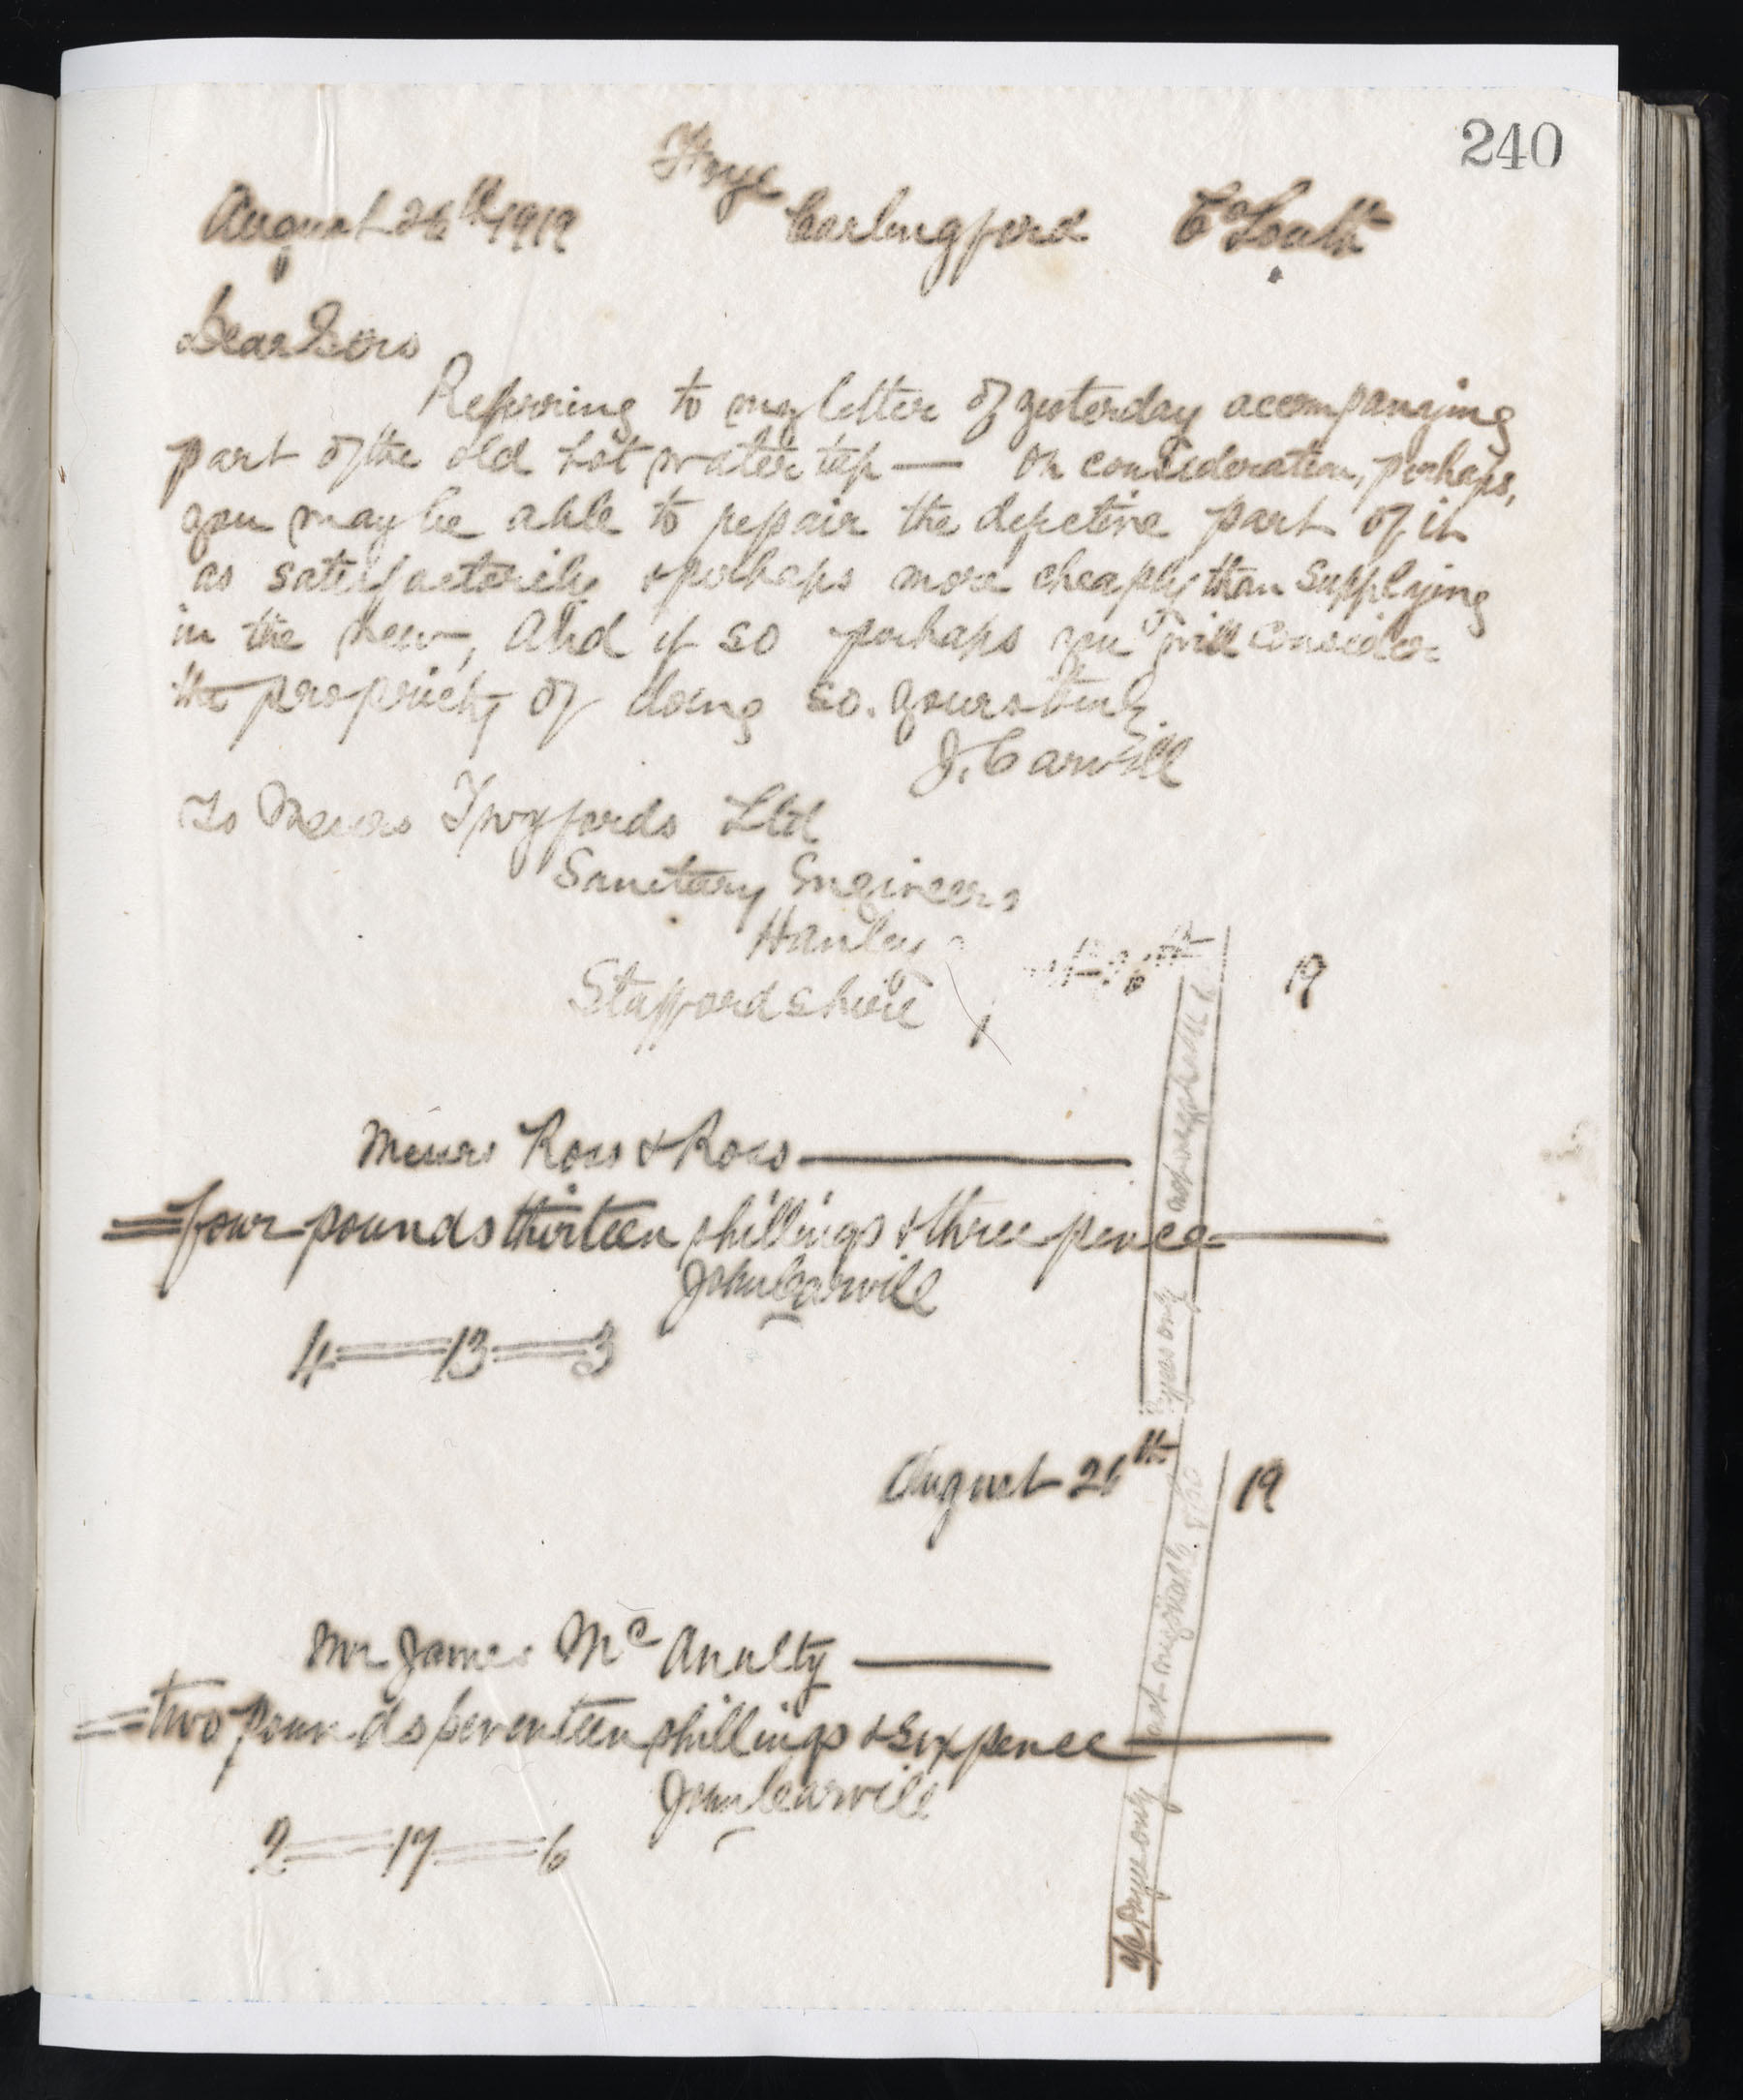 240
August 26th 1919 Carlingford Co Louth
Dear Sirs
Referring to my letter of yesterday accompanying
part of the old hot water tap — on consideration, perhaps,
you may be able to repair the defective part of it
as satisfactorily & perhaps more cheaply than supplying
in the new, And if so perhaps you will consider
the propriety of doing so. Yours truly
J. Carvill
To Messrs Twyfords Ltd
Sanitary Engineers
Hanley
Staffordshire
19
Messrs Ross & Ross
four pounds thirteen shillings & three pence
John Carvill
4 = 13 = 3
August 26th 19
Mr James McAnulty
two pounds seventeen shillings & sixpence
John Carvill
2 = 17 = 6
a/c payee only